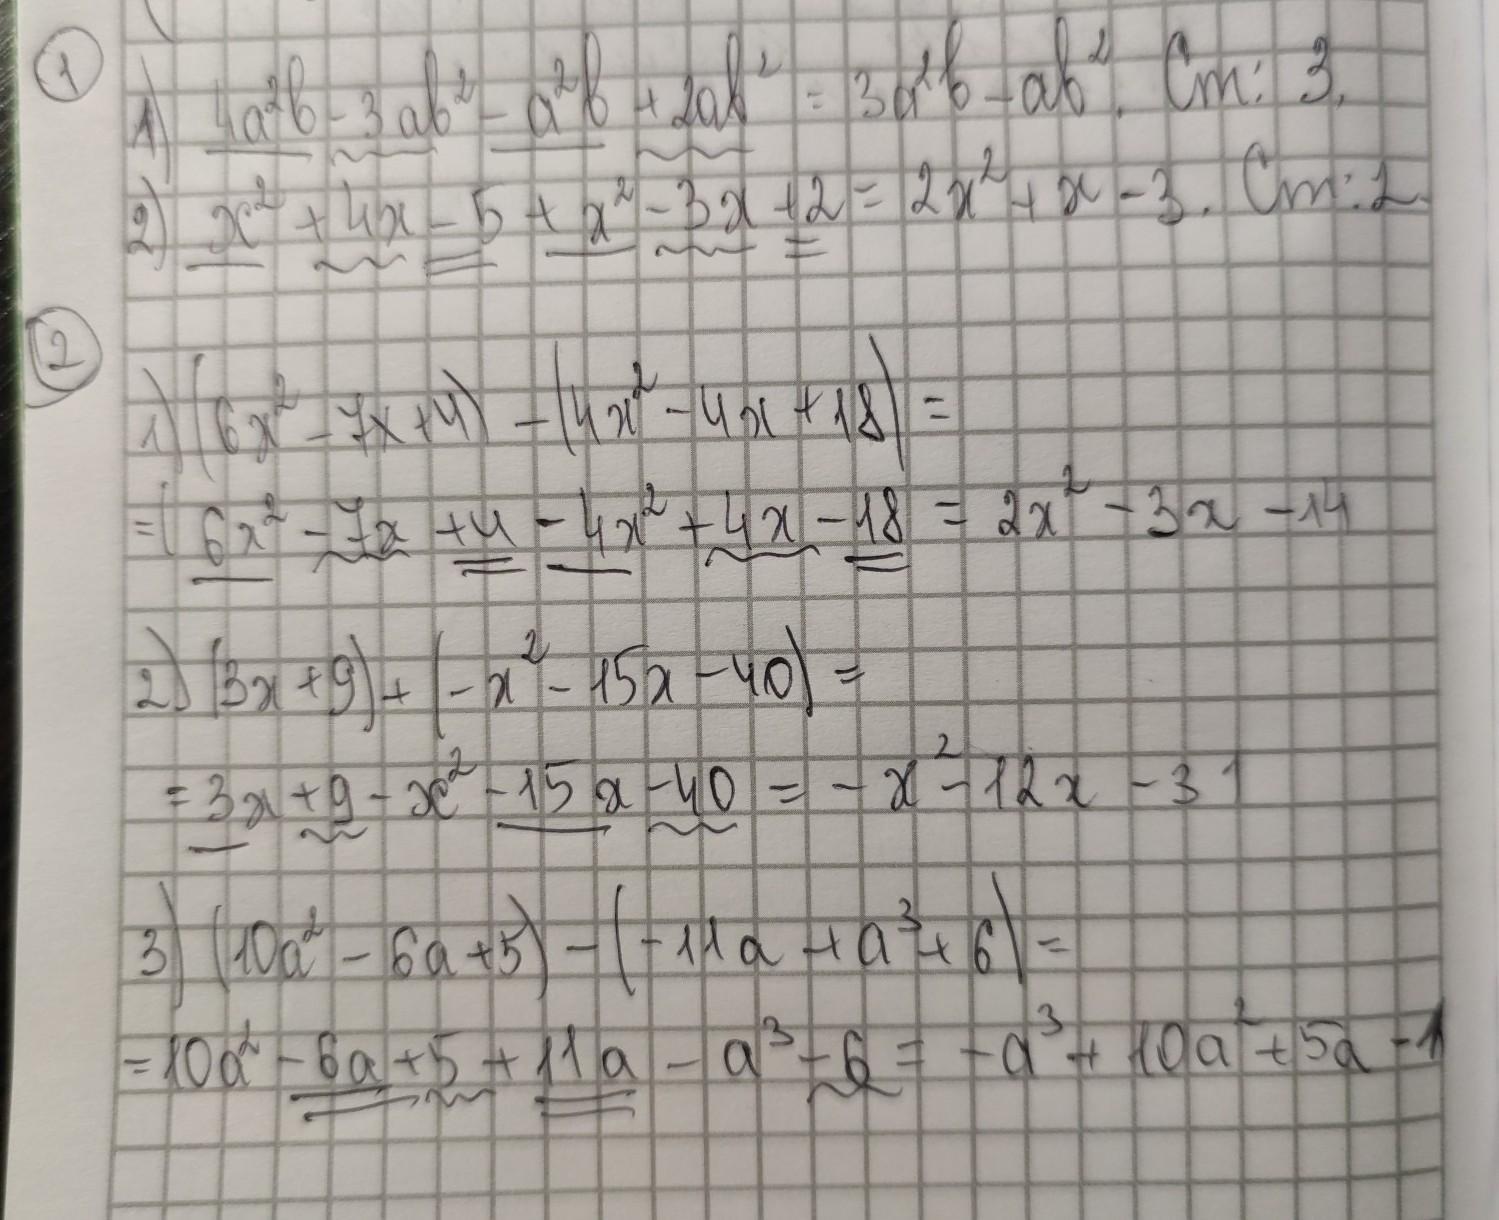 ①
1) 4a²b - 3ab² - a²b + 2ab² = 3a²b - ab². Ст: 3.
2) x² + 4x - 5 + x² - 3x + 2 = 2x² + x - 3. Ст: 2.
②
1) (6x² - 7x + 4) - (4x² - 4x + 18) =
= 6x² - 7x + 4 - 4x² + 4x - 18 = 2x² - 3x - 14
2) (3x + 9) + (-x² - 15x - 40) =
= 3x + 9 - x² - 15x - 40 = -x² - 12x - 31
3) (10a² - 6a + 5) - (-11a + a³ + 6) =
= 10a² - 6a + 5 + 11a - a³ - 6 = -a³ + 10a² + 5a - 1